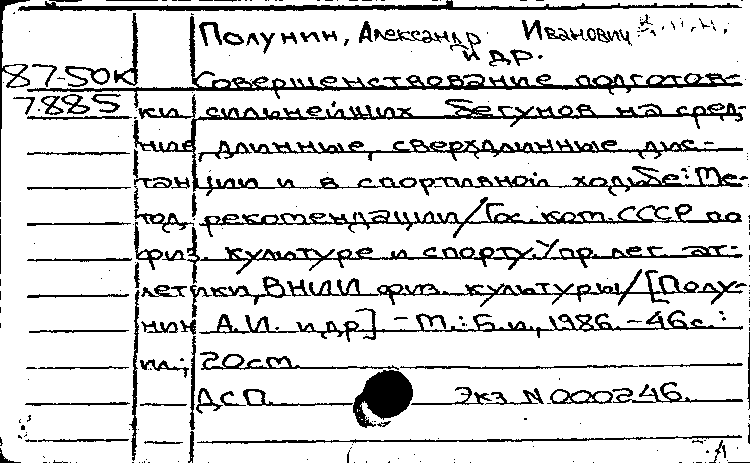 Полунин, Александр Иванович
и др.
87-50К Совершенствование подготов-
7.885 ки сильнейших бегунов на сред-
ние, длинные, сверхдлинные дис-
танции и в спортивной ходьбе: Ме-
тод. рекомендации/Гос. ком. СССР по
физ. культуре и спорту. Упр. лег. ат-
летики, ВНИИ физ. культуры/[Полу-
нин А.И. и др]. - М.: Б.и., 1986. - 46с.:
ил.; 20см.
ДСП. Экз N 000246.